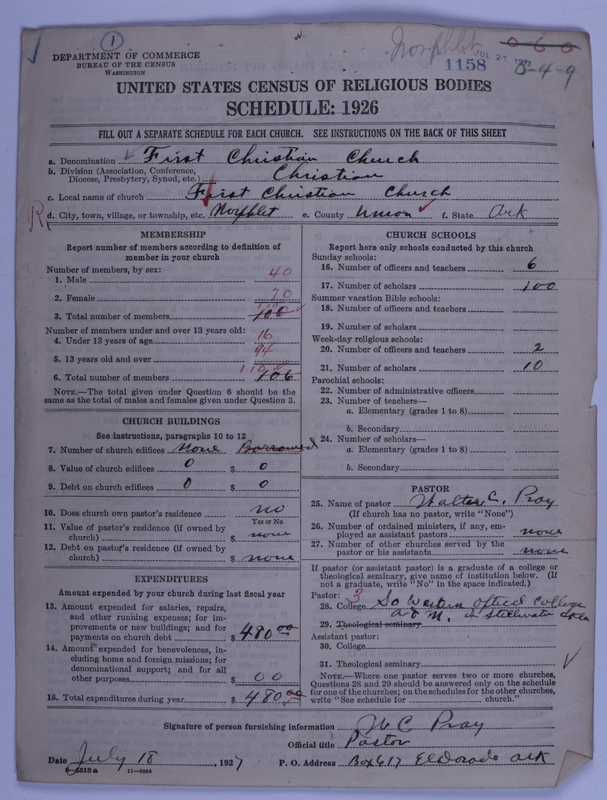 1
Norphlet
060
JUL 21
1158
8-4-9
DEPARTMENT OF COMMERCE
BUREAU OF THE CENSUS
WASHINGTON
UNITED STATES CENSUS OF RELIGIOUS BODIES
SCHEDULE: 1926
FILL OUT A SEPARATE SCHEDULE FOR EACH CHURCH. SEE INSTRUCTIONS ON THE BACK OF THIS SHEET
a. Denomination First Christian Church
b. Division (Association, Conference,
Diocese, Presbytery, Synod, etc.) Christian
c. Local name of church First Christian Church
d. City, town, village, or township, etc. Norphlet e. County Union f. State Ark
MEMBERSHIP
Report number of members according to definition of
member in your church
Number of members, by sex:
1. Male 40
2. Female 70
3. Total number of members 110 106
Number of members under and over 13 years old:
4. Under 13 years of age 16
5. 13 years old and over 94
6. Total number of members 110 106
NOTE.—The total given under Question 6 should be the
same as the total of males and females given under Question 3.
CHURCH BUILDINGS
See instructions, paragraphs 10 to 12
7. Number of church edifices None Borrowed
8. Value of church edifices 0 $ 0
9. Debt on church edifices 0 $ 0
10. Does church own pastor's residence no
Yes or No
11. Value of pastor's residence (if owned by
church) $ none
12. Debt on pastor's residence (if owned by
church) $ none
EXPENDITURES
Amount expended by your church during last fiscal year
13. Amount expended for salaries, repairs,
and other running expenses; for im-
provements or new buildings; and for
payments on church debt $ 480 00
14. Amount expended for benevolences, in-
cluding home and foreign missions; for
denominational support; and for all
other purposes $ 00
15. Total expenditures during year $ 480 00
CHURCH SCHOOLS
Report here only schools conducted by this church
Sunday schools:
16. Number of officers and teachers 6
17. Number of scholars 100
Summer vacation Bible schools:
18. Number of officers and teachers
19. Number of scholars
Week-day religious schools:
20. Number of officers and teachers 2
21. Number of scholars 10
Parochial schools:
22. Number of administrative officers
23. Number of teachers—
a. Elementary (grades 1 to 8)
b. Secondary
24. Number of scholars—
a. Elementary (grades 1 to 8)
b. Secondary
PASTOR
25. Name of pastor Walter C. Pray
(If church has no pastor, write "None")
26. Number of ordained ministers, if any, em-
ployed as assistant pastors none
27. Number of other churches served by the
pastor or his assistants none
If pastor (or assistant pastor) is a graduate of a college or
theological seminary, give name of institution below. (If
not a graduate, write "No" in the space indicated.)
Pastor: 3
28. College So Western Optical College
29. Theological seminary A & M. in Stillwater Okla
Assistant pastor:
30. College
31. Theological seminary
NOTE.—Where one pastor serves two or more churches,
Questions 28 and 29 should be answered only on the schedule
for one of the churches; on the schedules for the other churches,
write "See schedule for church."
Signature of person furnishing information W C Pray
Official title Pastor
Date July 18, 1927 P. O. Address Box 617 ElDorado Ark
8-2518a 11-9204